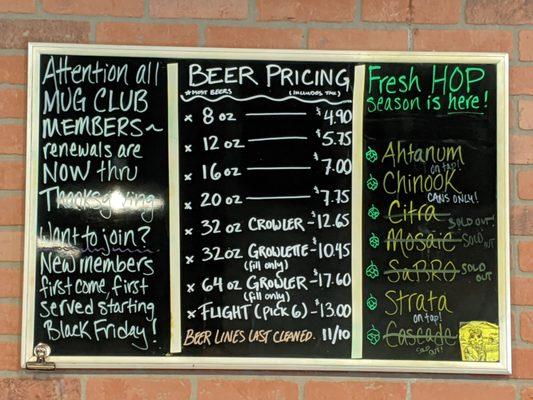 Attention all
MUG CLUB
MEMBERS~
renewals are
NOW thru
Thanksgiving
Want to join?
New members
first come, first
served starting
Black Friday!
BEER PRICING
*MOST BEERS (INCLUDES TAX)
x 8 oz $4.90
x 12 oz $5.75
x 16 oz $7.00
x 20 oz $7.75
x 32 oz CROWLER - $12.65
x 32 oz GROWLETTE - $10.45
(fill only)
x 64 oz GROWLER - $17.60
(fill only)
x FLIGHT (PICK 6) - $13.00
BEER LINES LAST CLEANED: 11/10
Fresh HOP
season is here!
Ahtanum
on tap!
Chinook
CANS ONLY!
Citra SOLD OUT!
Mosaic SOLD OUT
SaBRO SOLD OUT
Strata
on tap!
Cascade
SOLD OUT!